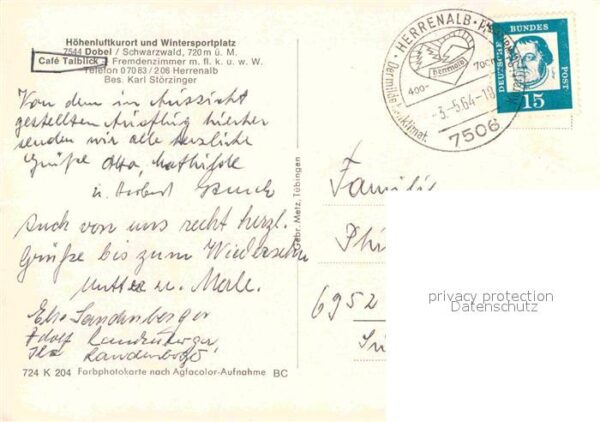 Höhenluftkurort und Wintersportplatz
7544 Dobel / Schwarzwald, 720 m ü. M.
Café Talblick Fremdenzimmer m. fl. k. u. w. W.
Telefon 07083 / 206 Herrenalb
Bes. Karl Störzinger
Von dem in Aussicht
gestellten Ausflug hierher
senden wir alle herzliche
Grüße Otto, Mathilde
u. Herbert
Auch von uns recht herzl.
Grüße bis zum Wiedersehn
Mutter u. Male.
Else Sandenberger
Adolf
Ilse
724 K 204 Farbphotokarte nach Agfacolor-Aufnahme BC
Gebr. Metz, Tübingen
HERRENALB
herrenalb
400- 700
-3.-5.64-18
7506
DEUTSCHE BUNDESPOST
15
Familie
Phi
6952
privacy protection
Datenschutz